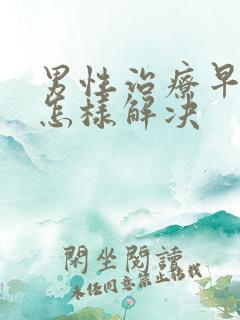 男性治療早
怎樣解決
閑坐閱讀
未经同意禁止转载